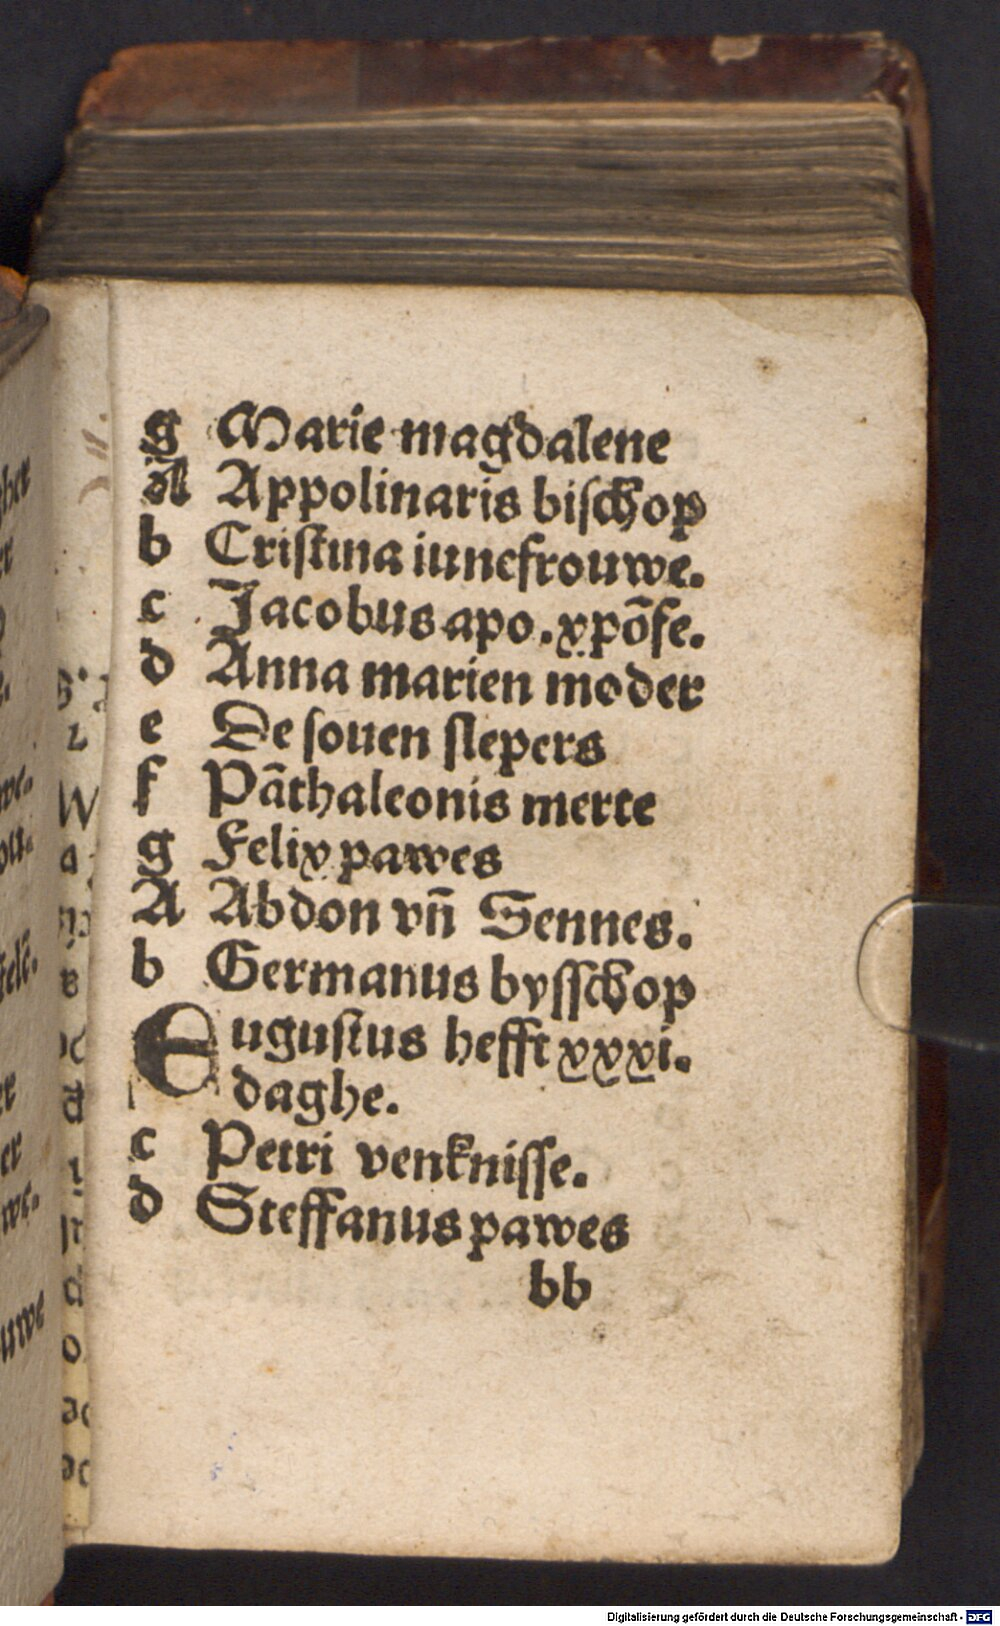 g Marie magdalene
A Appolinaris bischop
b Cristina iuncfrouwe.
c Jacobus apo. xpōfe.
d Anna marien moder
e De souen slepers
f Pāthaleonis merte
g Felix pawes
A Abdon vn̄ Sennes.
b Germanus bysschop
Eugustus hefft xxxi.
daghe.
c Petri venknisse.
d Steffanus pawes
bb
Digitalisierung gefördert durch die Deutsche Forschungsgemeinschaft - DFG